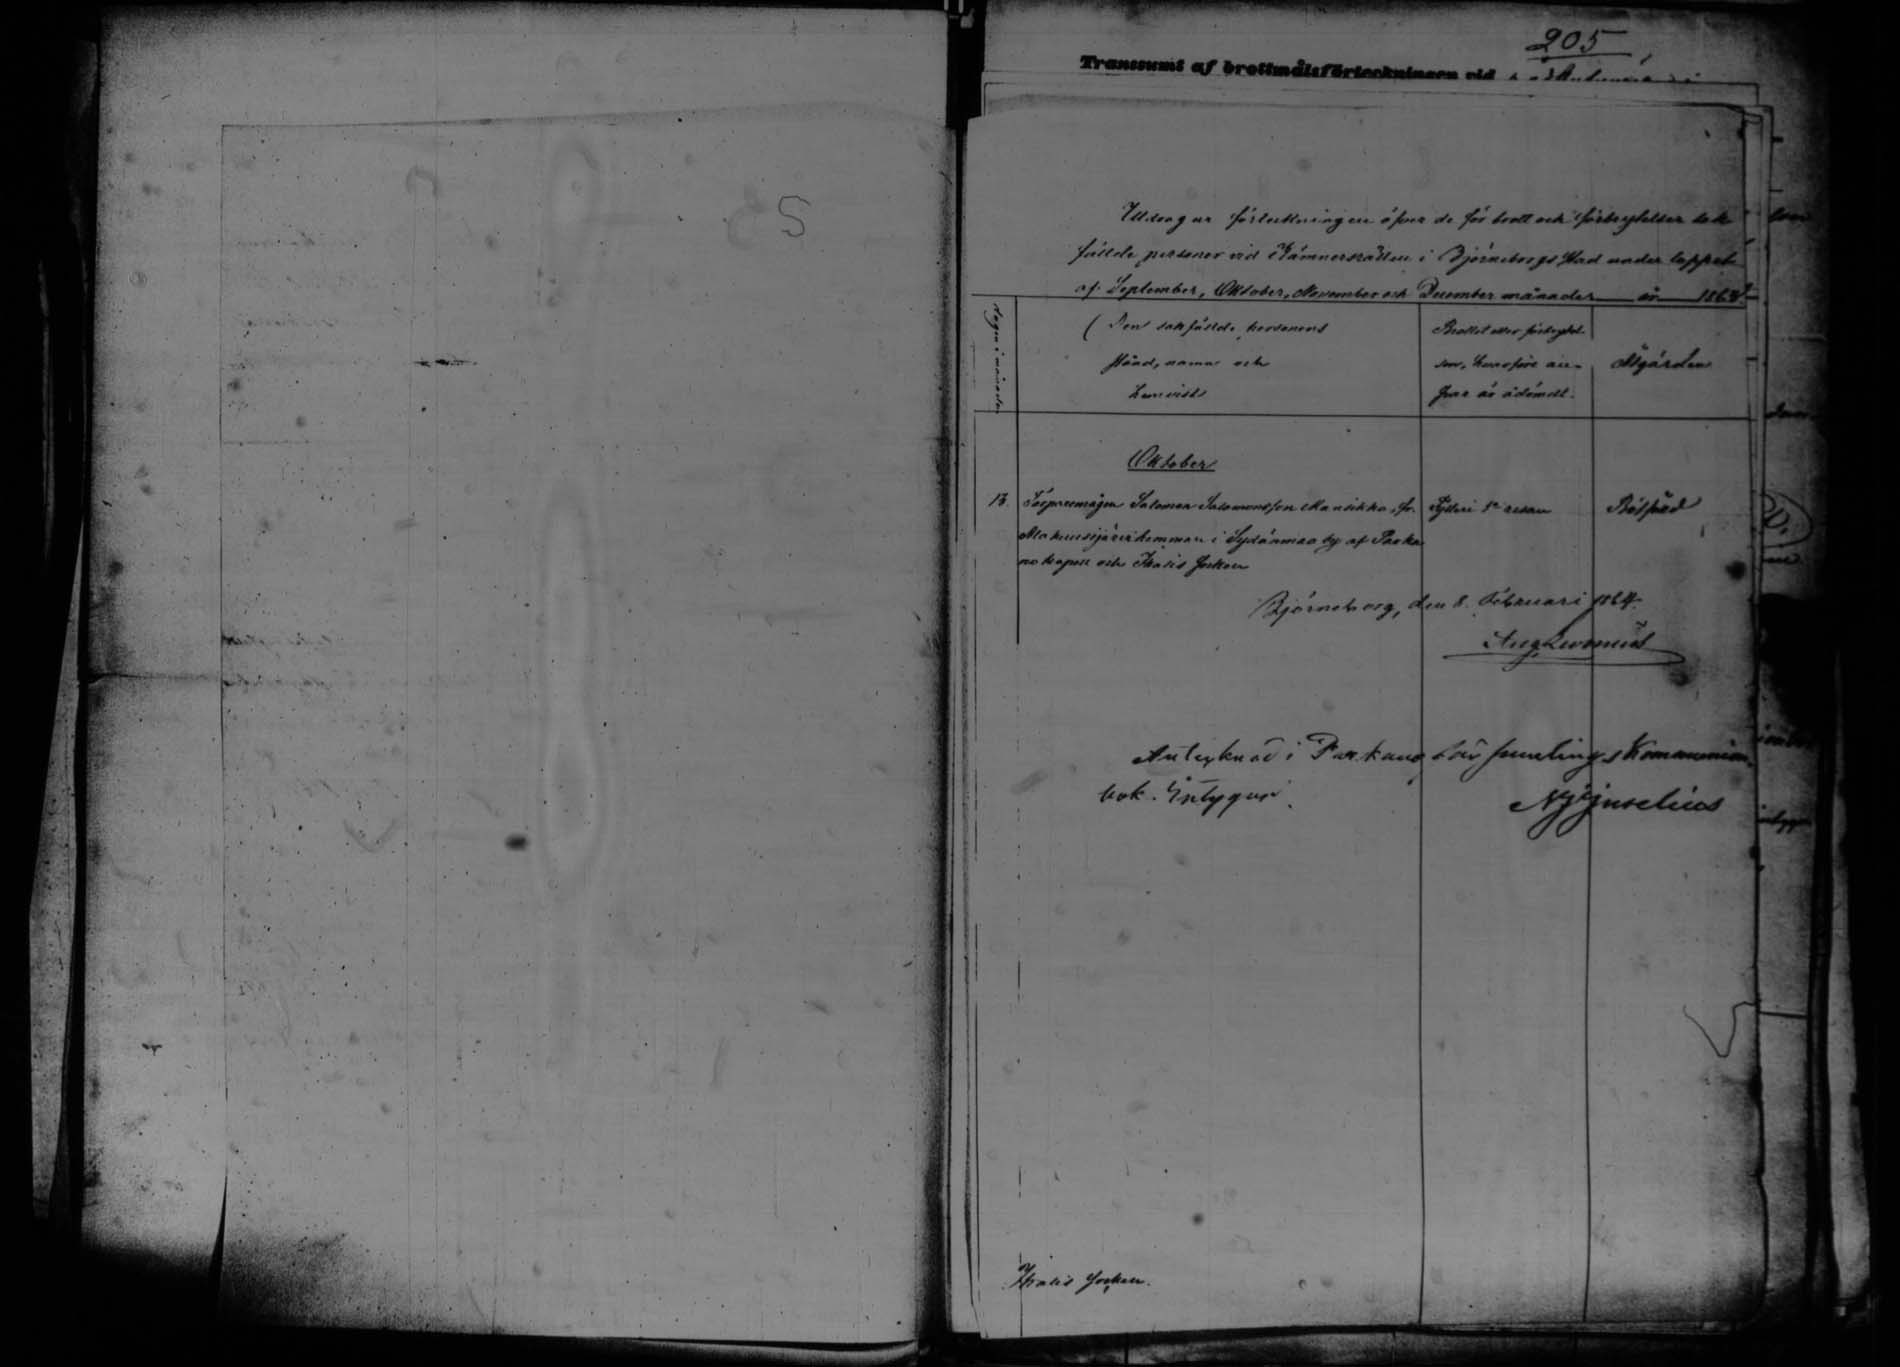 205
Transsumt af brottmålsförteckningen vid
Utdrag ur förteckningen öfver de för brott och förbrytelser sak
fällde personer vid Kämnersrätten i Björneborgs stad under loppet
af September, Oktober, November och December månader år 1863
Dagen i månaden
Den sakfällde personens
stånd, namn och
hemvist
Brottet eller förbrytel-
sen, hvarföre an-
svar är ådömdt.
Åtgärden
Oktober
13. Torparemågen Salomon Salomonsson Mansikka, fr.
hemman i Sydänmaa by af Parka
no kapell och Ikalis socken
Fylleri 1a resan
Bötfäld
Björneborg, den 8 Februari 1864.
Antecknad i Parkano församlings Kommunion
bok. Intygar
Ikalis Socken.